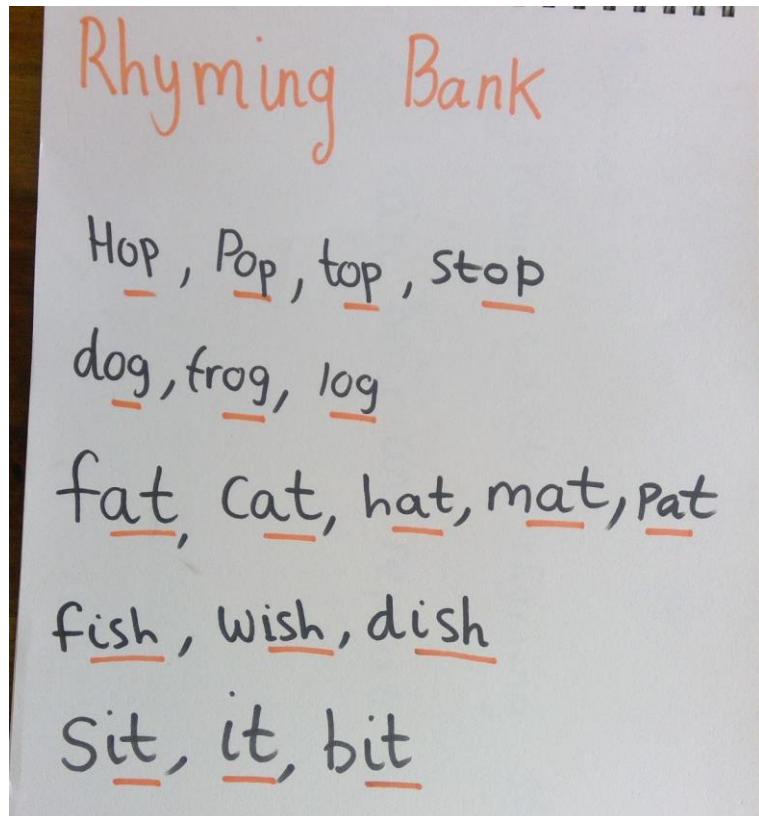 Rhyming Bank
Hop, Pop, top, stop
dog, frog, log
fat, cat, hat, mat, pat
fish, wish, dish
Sit, it, bit